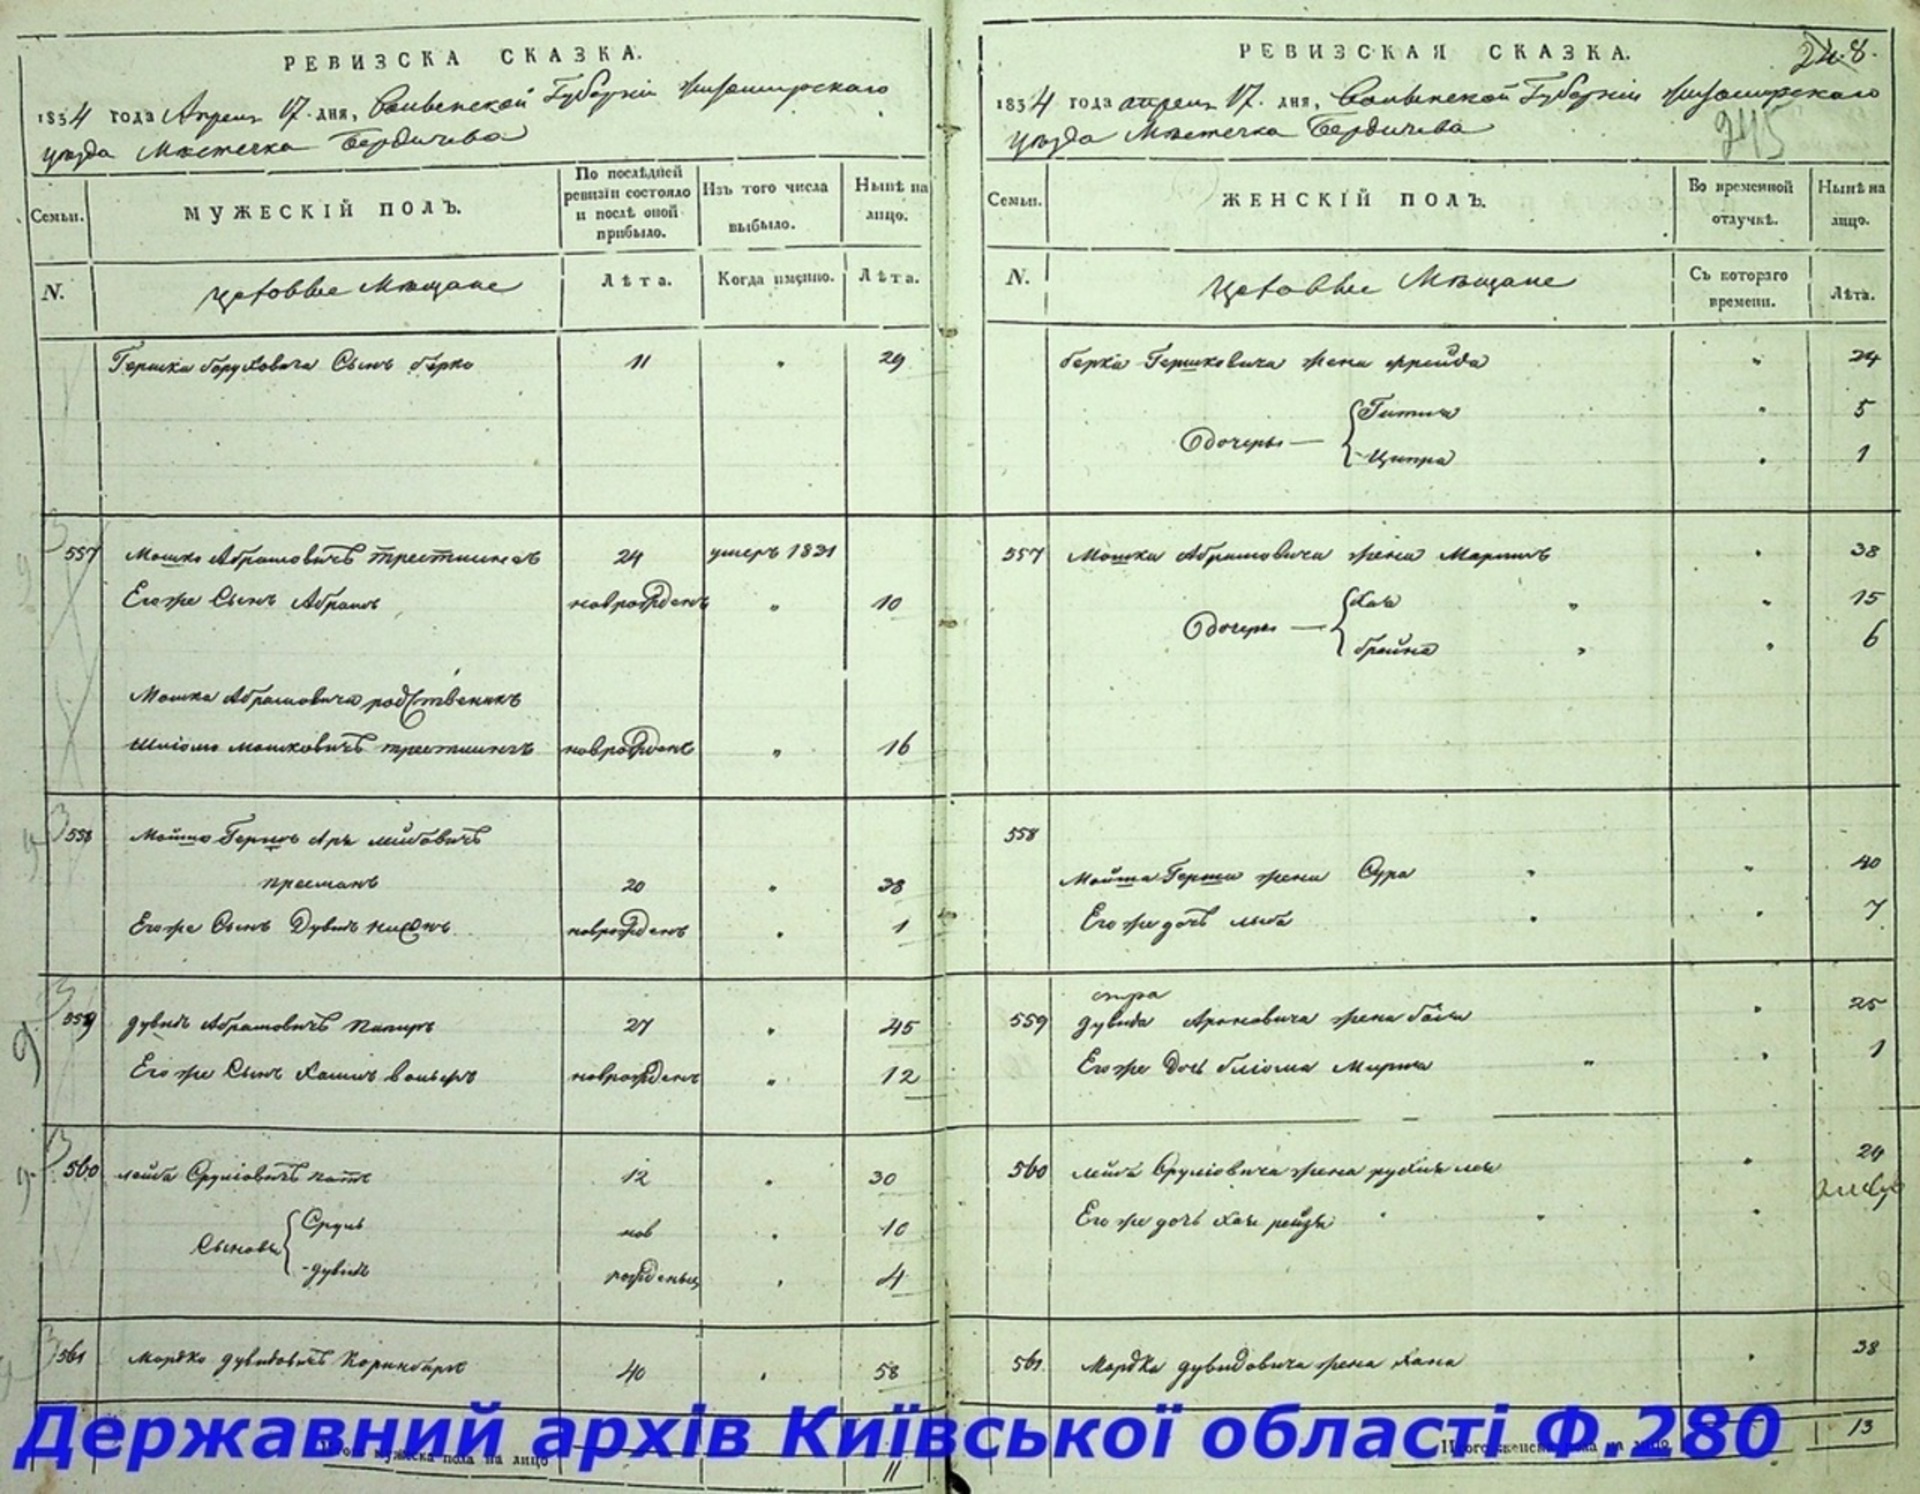 РЕВИЗСКА СКАЗКА.
1834 года Апреля 17 дня, Волынской Губернии Житомирского
уезда Местечка Бердичева
Семьи.
МУЖЕСКІЙ ПОЛЪ.
По послѣдней ревизіи состояло и послѣ оной прибыло.
Изъ того числа выбыло.
Нынѣ на лицо.
N.
Цеховые Мещане
Лѣта.
Когда имянно.
Лѣта.
Гершка Боруховича Сынъ Берко 11 " 29
557 Мошко Абрамовичъ 24 умеръ 1831
Его же Сынъ Абрамъ новрожденъ " 10
Мошка Абрамовича родственикъ
Шліомо Мошковичъ новрожденъ " 16
558 Лейбовичъ
20 " 38
Его же Сынъ Дувидъ новрожденъ " 1
559 Дувидъ Абрамовичъ 27 " 45
Его же Сынъ Хаимъ Вольфъ новрожденъ " 12
560 Лейба Срулiовичъ 12 " 30
Сыновья Сруль нов " 10
Дувидъ рожденыя " 4
561 Мордко Дувидовичъ 40 " 58
Итого мужеска пола на лицо 11
РЕВИЗСКАЯ СКАЗКА.
24. 8.
245
1834 года апреля 17 дня, Волынской Губерніи Житомирского
уезда Местечка Бердичева
Семьи.
ЖЕНСКІЙ ПОЛЪ.
Во временной отлучкѣ.
Нынѣ на лицо.
N.
Цеховые Мещане
Съ котораго времени.
Лѣта.
Берка Гершковича жена Фрейда " 24
Дочеры — Гитля " 5
Ципра " 1
557 Мошка Абрамовича жена " 38
Дочеры — Хая " " 15
Брайна " " 6
558
жена Сура " " 40
Его же дочь " " 7
559 Дувида жена " 25
Его же Дочь " " 1
560 Срулiовича жена " 24
Его же дочь Хая Рейзя " " "
561 Мордка Дувидовича жена Хана " 38
Итого женска пола на лицо 13
Державний архів Київської області Ф.280